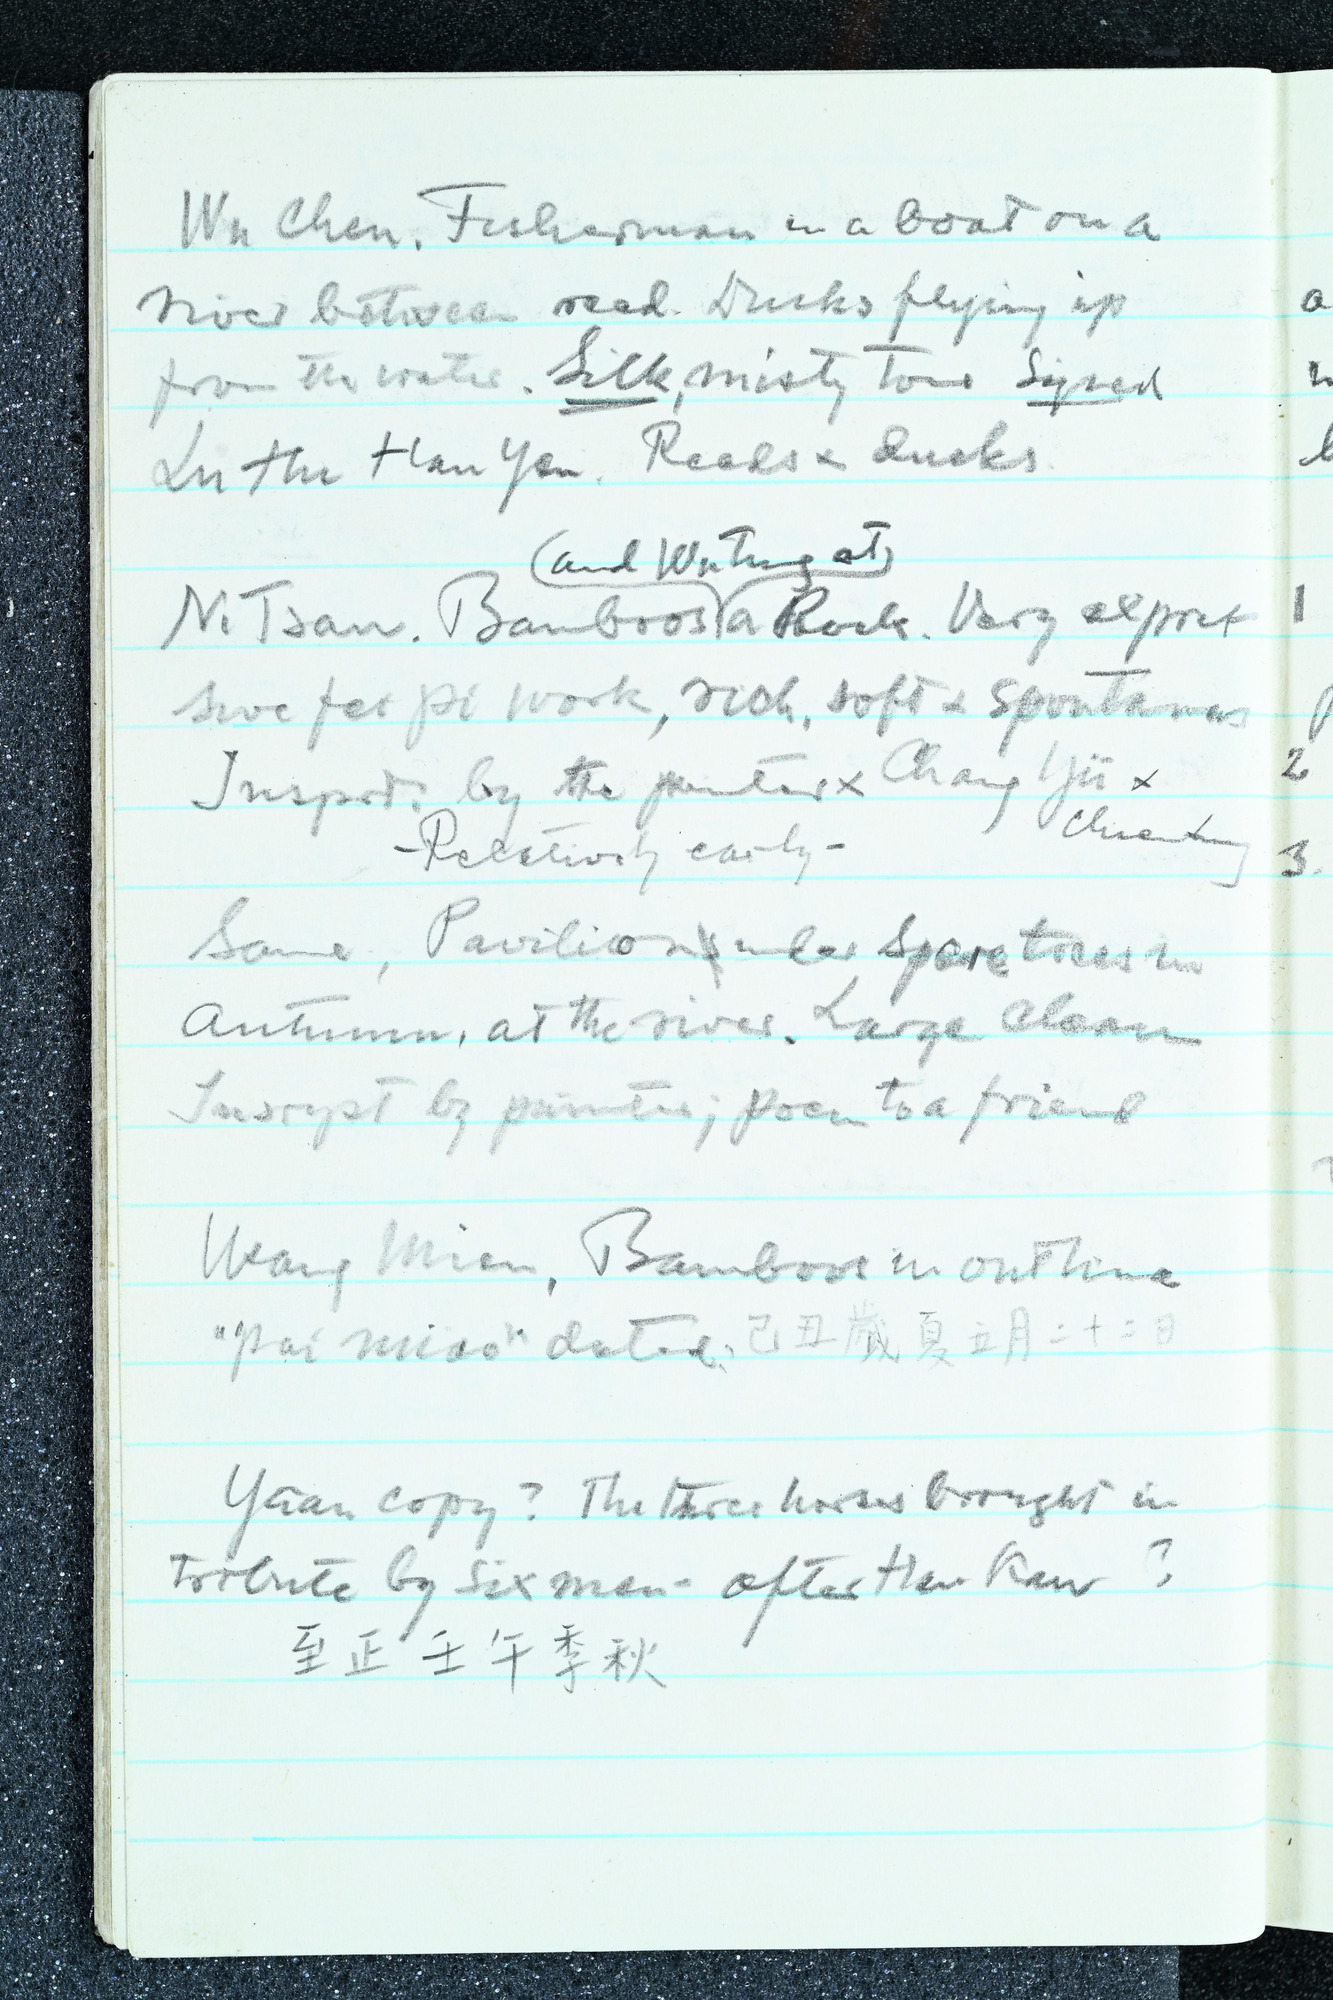 Wu Chen. Fisherman in a boat on a
river between reed. Ducks flying up
from the water. Silk, misty tone Signed
Reeds & ducks
(and Wutung at)
Ni Tsan. Bamboos a Rock. Very expres
sive fei pi work, rich, soft & spontaneus
by the painter x Chang Yü x
-Relatively early-
Same, Pavilion under Spare trees in
Autumn, at the river. Large clean
Inscript by painter; poem to a friend
Wang Mien, Bamboos in outline
"pai miao" dated: 己丑歲夏五月二十二日
Yüan copy? The three horses brought in
tribute by six men - after Han Kan ?
至正壬午季秋
1
2
3.